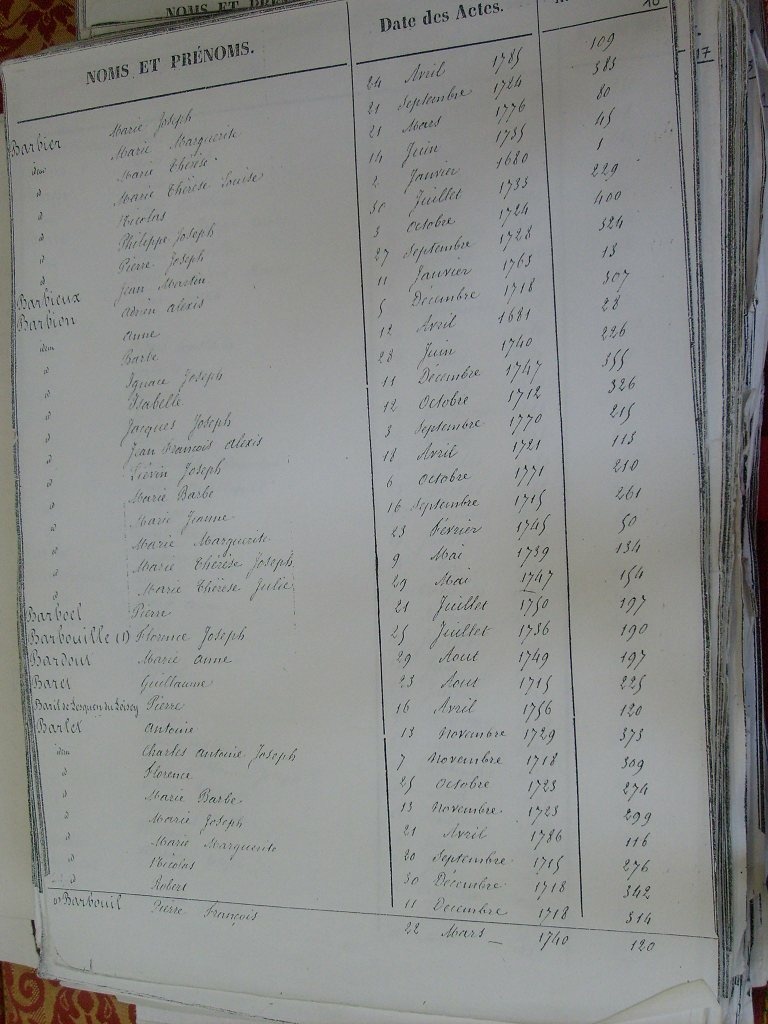 NOMS ET PRÉNOMS. Date des Actes.
Barbier Marie Joseph 24 Avril 1785 109
idem Marie Marguerite 21 Septembre 1724 383
id Marie Thérèse 21 Mars 1776 80
id Marie Thérèse Louise 14 Juin 1735 45
id Nicolas 2 Janvier 1680 1
id Philippe Joseph 30 Juillet 1733 229
id Pierre Joseph 3 Octobre 1724 400
Barbieux Jean Martin 27 Septembre 1728 324
Barbion Adrien Alexis 11 Janvier 1763 13
idem Anne 5 Décembre 1718 307
id Barbe 12 Avril 1681 28
id Ignace Joseph 28 Juin 1740 226
id Isabelle 11 Décembre 1747 355
id Jacques Joseph 12 Octobre 1712 326
id Jean François Alexis 3 Septembre 1770 215
id Liévin Joseph 18 Avril 1721 113
id Marie Barbe 6 Octobre 1771 210
id Marie Jeanne 16 Septembre 1715 261
id Marie Marguerite 23 Février 1745 50
id Marie Thérèse Joseph 9 Mai 1739 134
id Marie Thérèse Julie 29 Mai 1747 154
Barboel Pierre 21 Juillet 1750 197
Barbouille (1) Florence Joseph 25 Juillet 1736 190
Bardout Marie Anne 29 Aout 1749 197
Baret Guillaume 23 Aout 1715 225
Baril de Lesquen du Loiscy Pierre 16 Avril 1756 120
Barlet Antoine 13 Novembre 1729 373
idem Charles Antoine Joseph 7 Novembre 1718 309
id Florence 25 Octobre 1723 274
id Marie Barbe 13 Novembre 1723 299
id Marie Joseph 21 Avril 1786 116
id Marie Marguerite 20 Septembre 1715 276
id Nicolas 30 Décembre 1718 342
id Robert 11 Décembre 1718 314
(1) Barbouil Pierre François 22 Mars 1740 120